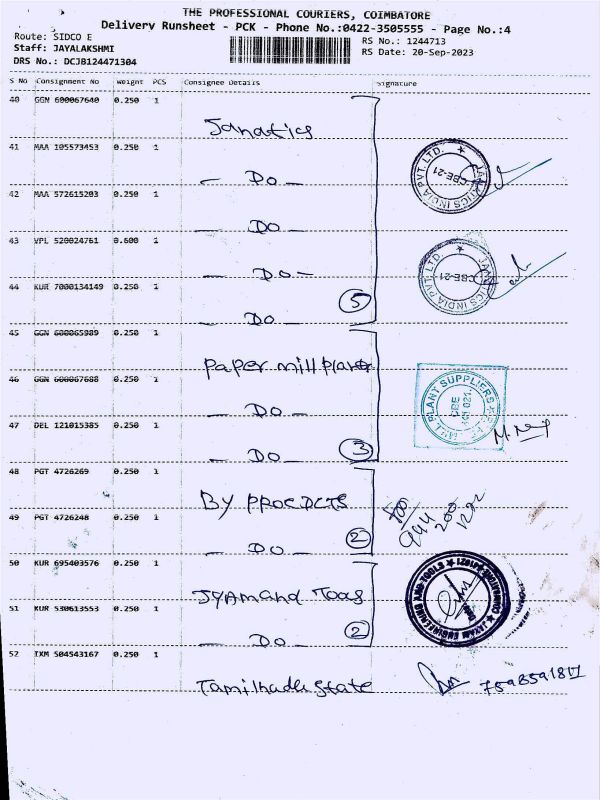 THE PROFESSIONAL COURIERS, COIMBATORE
Delivery Runsheet - PCK - Phone No.:0422-3505555 - Page No.:4
Route: SIDCO E
RS No.: 1244713
Staff: JAYALAKSHMI
RS Date: 20-Sep-2023
DRS No.: DCJB124471304
S No Consignment No Weight PCS Consignee Details Signature
40 GGN 600067640 0.250 1
Janatics
41 MAA 105573453 0.250 1
— Do —
42 MAA 572615203 0.250 1
— Do —
43 VPL 520024761 0.600 1
— Do —
44 KUR 7000134149 0.250 1
5
— Do —
JANATICS INDIA PVT. LTD. ★
CBE-21
JANATICS INDIA PVT. LTD. ★
CBE-21
45 GGN 600065989 0.250 1
Paper mill plant
46 GGN 600067688 0.250 1
— Do —
47 DEL 121015385 0.250 1
3
— Do —
MILL PLANT SUPPLIERS
CBE
48 PGT 4726269 0.250 1
BY PROCDCTS
49 PGT 4726248 0.250 1
2
— Do —
944 200
1292
50 KUR 695403576 0.250 1
JYAM and Toos
51 KUR 530613553 0.250 1
2
— Do —
JAYAM ENGINEERING AND TOOLS ★
52 IXM 504543167 0.250 1
Tamilnadu State